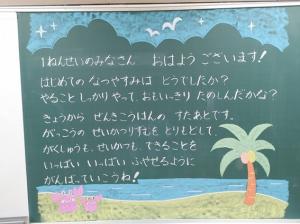 1ねんせいのみなさん　おはよう ございます!
はじめての なつやすみは どうでしたか?
やること しっかり やって、おもいっきり たのしんだかな?
きょうから ぜんきこうはんの すたあとです。
がっこうの せいかつりずむを とりもどして、
がくしゅうも、せいかつも、できることを
いっぱい いっぱい ふやせるように
がんばっていこうね!